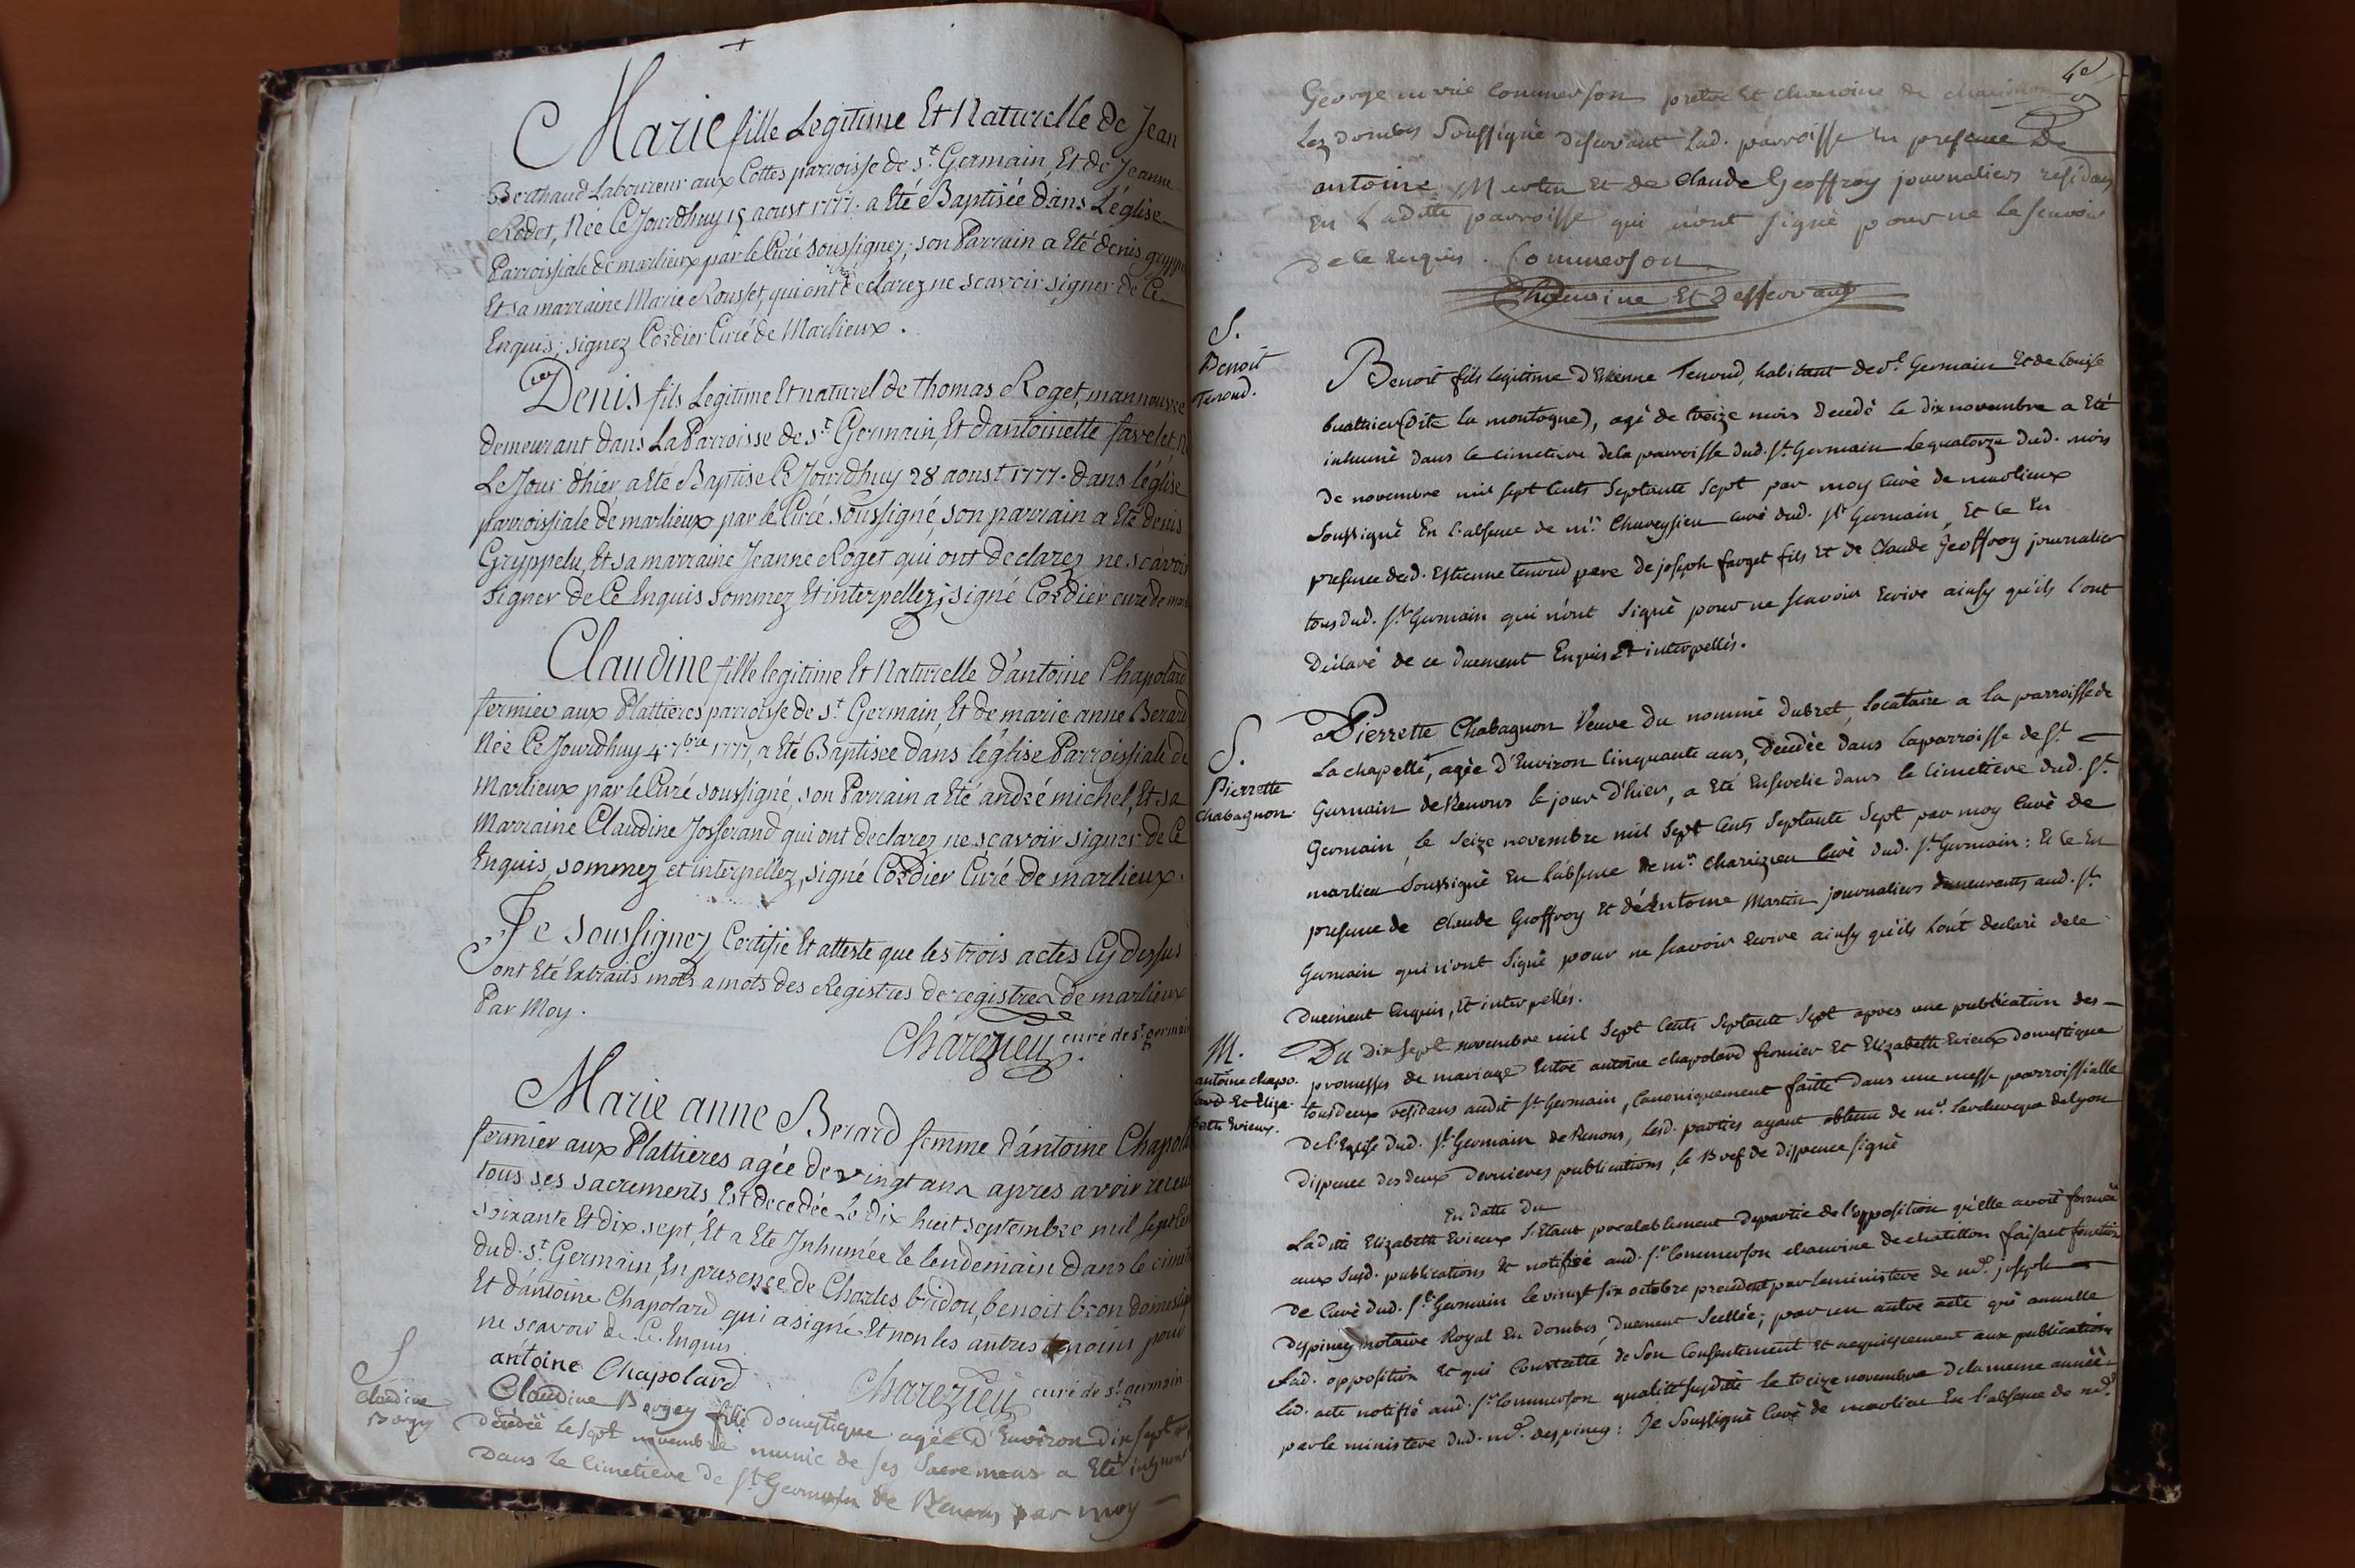 Marie fille Legitime Et Naturelle de Jean
Berthaud Laboureur aux Cottes parroisse de St. Germain, Et de Jeanne
Rodet, Née Ce Jourdhuy 15 aoust 1777. a Eté Baptisée dans L'église
Parroissiale de marlieux par le Curé soussignez; son Parrain a Eté denis
Et sa marraine Marie Rousset, qui ont declarez ne scavoir signer de Ce
Enquis; signez Cordier Curé de Marlieux.
Denis fils Legitime Et naturel de thomas Roget, mannouvre
demeurant dans La Parroisse de St. Germain, Et d'antoinette favelet,
Le Jour d'hier a Eté Baptise Ce Jourdhuy 28 aoust 1777. dans l'église
parroissiale de marlieux par le Curé soussigné, son parrain a Eté denis
Gryppelu, Et sa marraine Jeanne Roget qui ont declarez ne scavoir
signer de Ce Enquis sommez Et interpellez; signé Cordier curé de
Claudine fille legitime Et Naturelle d'antoine Chapolard
fermier aux Plattieres parroisse de St. Germain, Et de marie anne Berard
Née Ce Jourdhuy 4. 7bre 1777, a Eté Baptisee dans l'église Parroissiale de
Marlieux par le Curé soussigné, son Parrain a Eté andré michel, Et sa
Marraine Claudine Josserand qui ont declarez ne scavoir signer de Ce
Enquis, sommez et interpellez, signé Cordier Curé de marlieux.
Je soussignez Certifie Et atteste que les trois actes Cy dessus
ont Eté Extraits mots a mots des Registres de registrea de marlieux
Par Moy.
Charezieu curé de st. germain
Marie anne Berard femme d'antoine
fermier aux Plattieres agée de vingt ans apres avoir receu
tous ses sacrements Est decedée Le dix huit septembre mil sept
soixante Et dix sept, Et a Ete Inhumée le lendemain dans le
dud. St. Germain, En presence de Charles bridou, benoit
Et d'antoine Chapolard qui a signé Et non les autres temoins pour
ne scavoir de Ce. Enquis
antoine Chapolard
Charezieu curé de st. germain
S
Claudine
Borgey
Claudine Borgey fille Domestique agée D'Environ dix sept
Décédée le sept novembre munie de ses Sacremens a Eté
Dans le Cimetière de St. Germain de Renons par moy
4e
George marie Commerson pretre Et chanoine de chatillon
Lez dombes Soussigné desservant Lad. parroisse En presence De
antoine Martin Et de Claude Geoffroy journaliers residans
En Laditte parroisse qui n'ont signé pour ne le scavoir
de ce Enquis. Commerson
Chanoine Et Desservant
S.
Benoit
Tenoud.
Benoit fils legitime d'Estienne Tenoud, habitant de St. Germain Et de Louise
buathier (Dite la montagne), agé de treize mois Decedé le dix novembre a Eté
inhumé dans le cimetiere de la parroisse dud. St. Germain le quatorze dud. mois
De novembre mil sept cents Septante Sept par moy Curé de marlieux
Soussigné En l'absence de mr. Chareyzieu curé dud. St. Germain, Et Ce En
presence dud. Estienne tenoud pere de joseph farget fils Et de Claude Geoffroy journalier
tous dud. St. Germain qui n'ont Signé pour ne scavoir Ecrire ainsy qu'ils l'ont
Déclaré de ce Duement Enquis Et interpellés.
S.
Pierrette
Chabagnon.
Pierrette Chabagnon Veuve du nommé Dubret, Locataire a la parroisse de
La chapelle, agée d'Environ Cinquante ans, Decedée dans la parroisse de St.
Germain de Renons le jour D'hier, a Eté Ensevelie dans le Cimetiere dud. St.
Germain, le Seize novembre mil Sept Cents Septante Sept par moy Curé de
marlieu Soussigné En l'absence de mr. Chariezieu Curé dud. St. Germain: Et Ce En
presence de Claude Geoffroy Et d'antoine Martin journaliers demeurants aud. St.
Germain qui n'ont Signé pour ne scavoir Ecrire ainsy qu'ils l'ont declaré de Ce
Duement Enquis, Et interpellés.
M.
antoine chapo.
lard Et Eliza.
beth Evieux.
Du dix sept novembre mil Sept Cents Septante Sept apres une publication des
promesses de mariage Entre antoine chapolard fermier Et Elizabeth Evieux Domestique
tous deux residans audit St. Germain, Canoniquement faitte Dans une messe parroissialle
De l'Eglise dud. St. Germain de Renons, Lesd. parties ayant obtenu de mr. Larcheveque de lyon
Dispence Des deux Dernieres publications, le Bref de Dispence signé
En datte du
Laditte Elizabeth Evieux S'Etant prealablement Departie de l'opposition qu'elle avoit formée
aux Susd. publications Et notifiée aud. Sr. Commerson chanoine de chatillon faisant fonction
De Curé dud. St. Germain le vingt six octobre precedent par le ministere de me. joseph
Despiney notaire Royal En Dombes, Duement Scellée; par un autre acte qui annulle
Lad. opposition Et qui Constatte de Son Consentement Et acquiescement aux publications
Led. acte notifié aud. Sr. Commerson qualité Susditte le treize novembre de la meme année
par le ministere dud. me. despiney: Je Soussigné Curé de marlieu En l'absence de mr.